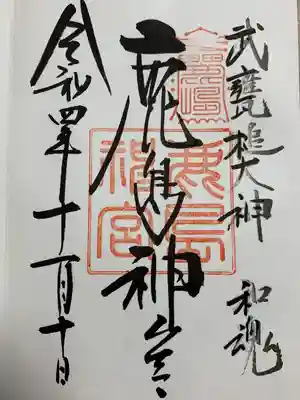 武甕槌大神
和魂
鹿島神宮
鹿島
神宮
令和四年十一月十日